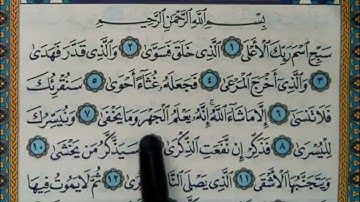 بِسْمِ اللَّهِ الرَّحْمَٰنِ الرَّحِيمِ
سَبِّحِ اسْمَ رَبِّكَ الْأَعْلَى ١ الَّذِي خَلَقَ فَسَوَّىٰ ٢ وَالَّذِي قَدَّرَ فَهَدَىٰ
٣ وَالَّذِي أَخْرَجَ الْمَرْعَىٰ ٤ فَجَعَلَهُ غُثَاءً أَحْوَىٰ ٥ سَنُقْرِئُكَ
فَلَا تَنْسَىٰ ٦ إِلَّا مَا شَاءَ اللَّهُ إِنَّهُ يَعْلَمُ الْجَهْرَ وَمَا يَخْفَىٰ ٧ وَنُيَسِّرُكَ
لِلْيُسْرَىٰ ٨ فَذَكِّرْ إِنْ نَفَعَتِ الذِّكْرَىٰ سَيَذَّكَّرُ مَنْ يَخْشَىٰ ١٠
وَيَتَجَنَّبُهَا الْأَشْقَى ١١ الَّذِي يَصْلَى ١٢ ثُمَّ لَا يَمُوتُ فِيهَا